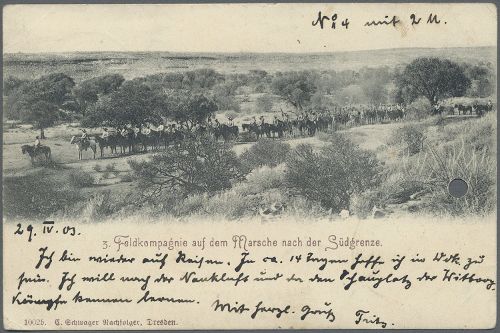 No 4 mit 2 M.
29. IV. 03.
3. Feldkompagnie auf dem Marsche nach der Südgrenze.
Ich bin wieder auf Reisen. In ca. 14 Tagen hoffe ich in Wdk. zu
sein. Ich will noch der Naukluft und da den Schauplatz der Wittboy-
Kämpfe kennen lernen. Mit herzl. Gruß
Fritz.
10025. C. Schwager Nachfolger, Dresden.